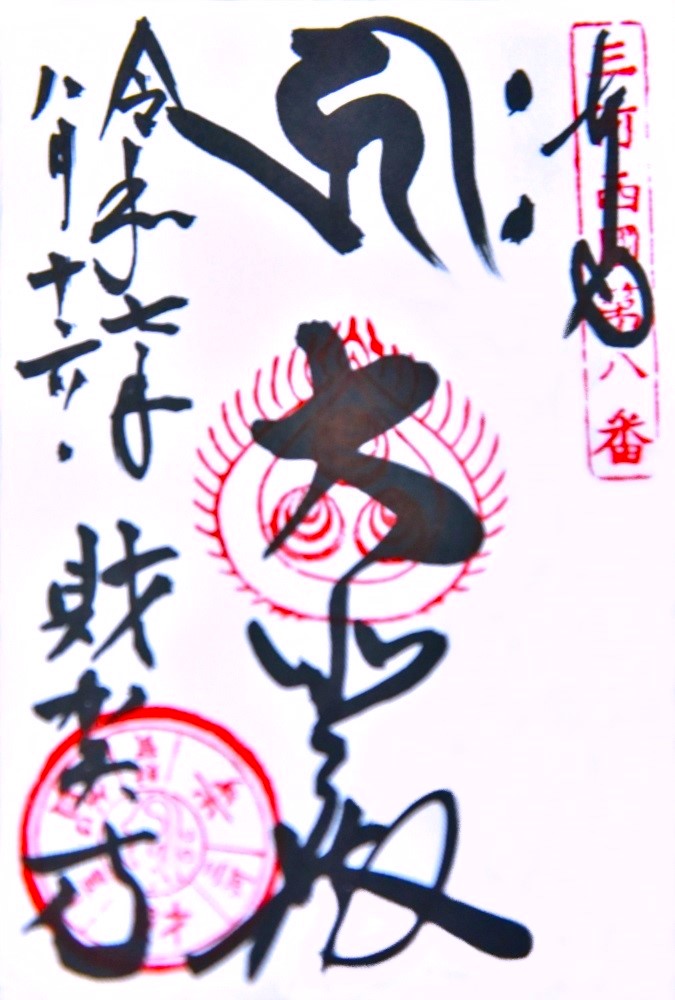 三河西国第八番
奉拝
大悲殿
令和七年
八月十六日
財賀寺